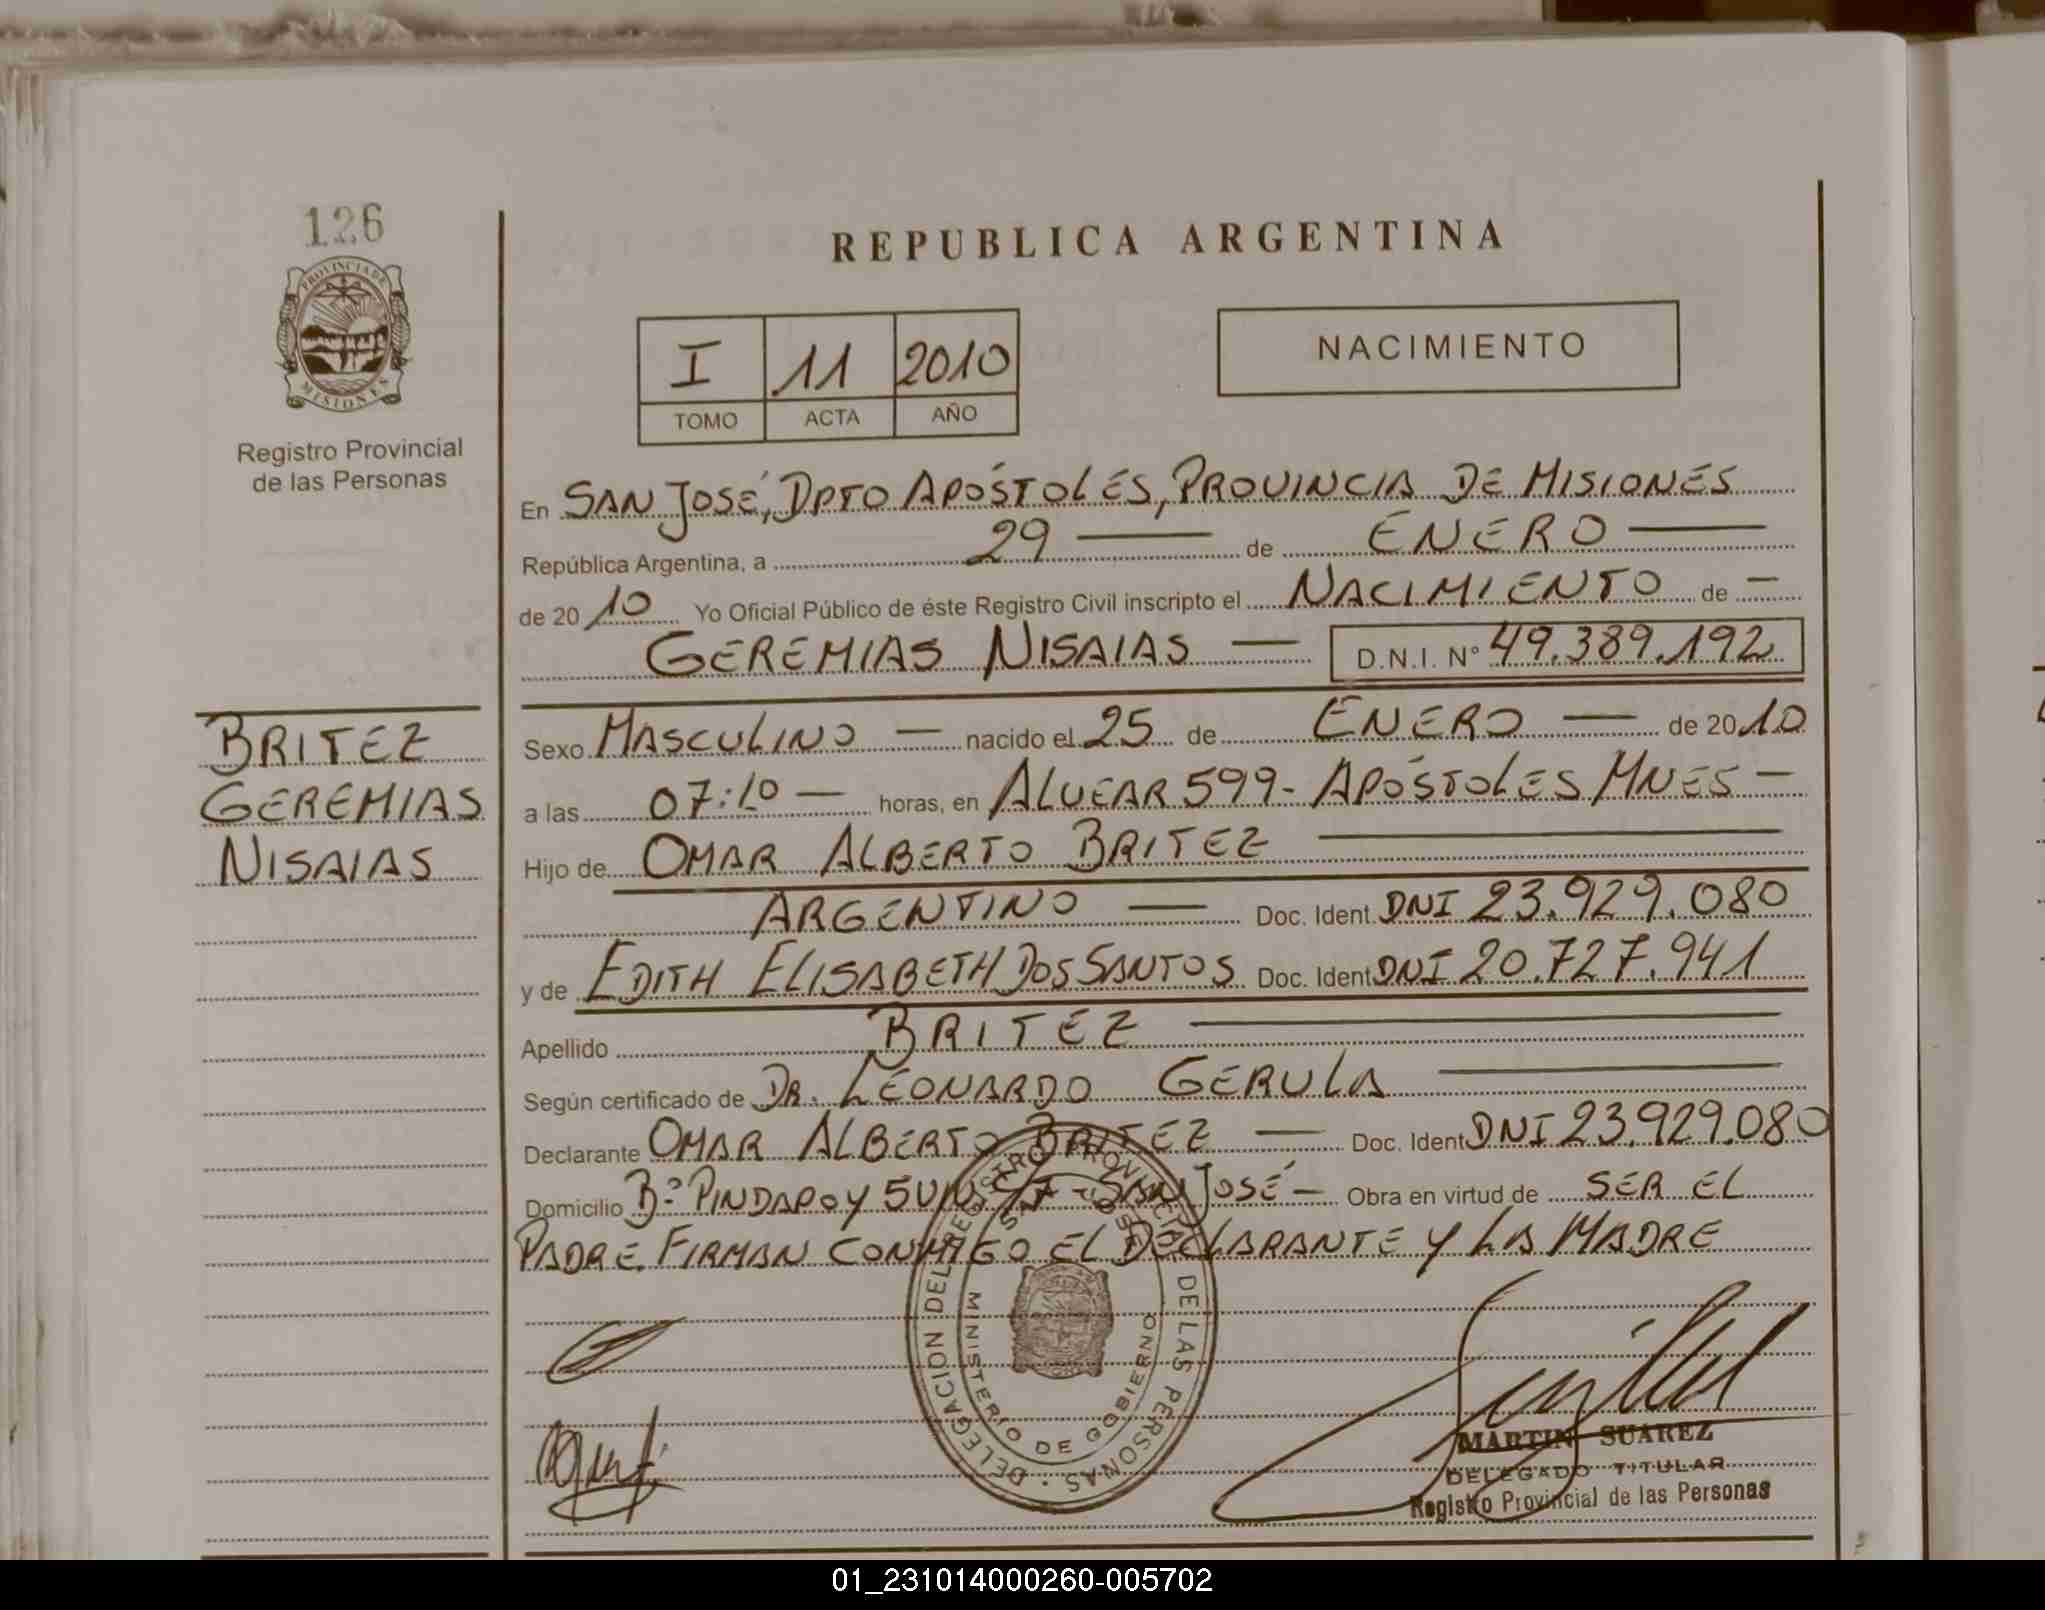 126
PROVINCIA DE
MISIONES
Registro Provincial
de las Personas
BRITEZ
GEREMIAS
NISAIAS
REPUBLICA ARGENTINA
I 11 2010
TOMO ACTA AÑO
NACIMIENTO
En SAN JOSÉ, DPTO APÓSTOLES, PROVINCIA DE MISIONES
República Argentina, a 29 — de ENERO —
de 20 10 Yo Oficial Público de éste Registro Civil inscripto el NACIMIENTO de —
GEREMIAS NISAIAS — D.N.I. N° 49.389.192
Sexo MASCULINO — nacido el 25 de ENERO — de 2010
a las 07:10 — horas, en ALVEAR 599- APÓSTOLES MNES —
Hijo de OMAR ALBERTO BRITEZ —
ARGENTINO — Doc. Ident. DNI 23.929.080
y de EDITH ELISABETH DOS SANTOS Doc. Ident DNI 20.727.941
Apellido BRITEZ —
Según certificado de DR. LEONARDO GERULA —
Declarante OMAR ALBERTO BRITEZ — Doc. Ident DNI 23.929.080
Domicilio Bº PINDAPOY - SAN JOSÉ — Obra en virtud de SER EL
PADRE. FIRMAN CONMIGO EL DECLARANTE Y LA MADRE
DELEGACION DEL REGISTRO PROVINCIAL DE LAS PERSONAS
SAN JOSE
MINISTERIO DE GOBIERNO
MARTIN SUAREZ
DELEGADO TITULAR
Registro Provincial de las Personas
01_231014000260-005702